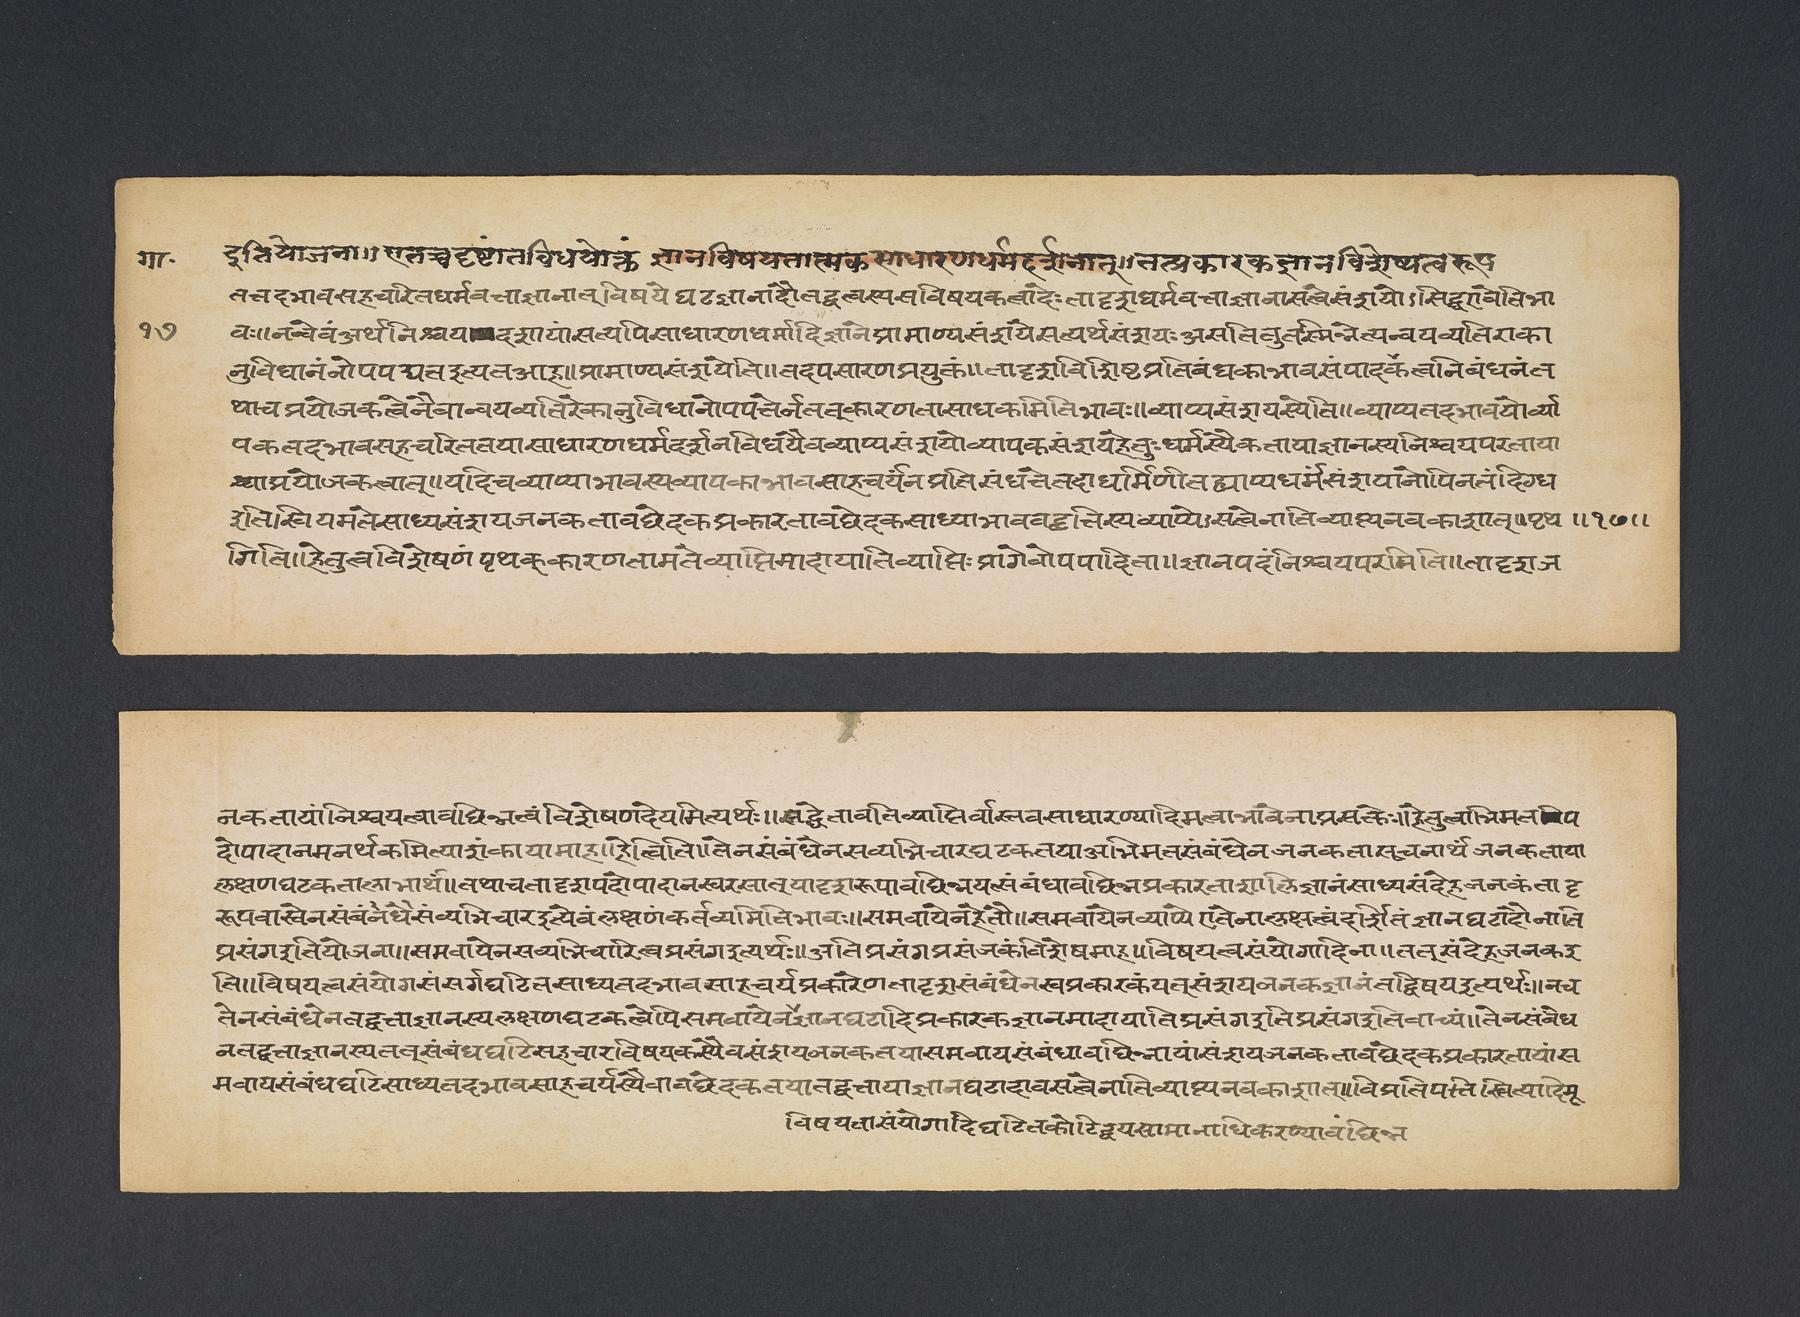 गा.
१७
दुतियोजना॥ एतच्चदृष्टांतविधयोक्तं ज्ञानविषयतात्मकसाधारणधर्मदर्शनात्॥तत्प्रकारकज्ञानविशेष्यत्वरूप
तत्तदभावसहचरितधर्मवत्ताज्ञानात् विषये घटज्ञानादौतद्वत्वस्यसविषयकत्वादेः तादृशधर्मवत्ताज्ञानासत्वेसंशयोऽसिद्धएवेतिभा
वः॥नन्वेवंअर्थनिश्चयदशायांसत्यपिसाधारणधर्मादिज्ञानेप्रामाण्यसंशयेसत्यर्थसंशयः असतितुतस्मिन्नेत्यन्वयव्यतिराका
नुविधानंनोपपद्यतइत्यतआह॥प्रामाण्यसंशयेति॥तदपसारणप्रयुक्तं॥तादृशविशिष्टप्रतिबंधकाभावसंपादकत्वनिबंधनंत
थाचप्रयोजकत्वेनैवान्वयव्यतिरेकानुविधानोपपत्तेर्नतत्कारणतासाधकमितिभावः॥व्याप्यसंशयस्येति॥व्याप्यतदभावयोर्व्या
पकतदभावसहचरिततयासाधारणधर्मदर्शनविधयैवव्याप्यसंशयोव्यापकसंशयहेतुः धर्मस्यैकतायाज्ञानस्यनिश्चयपरताया
श्चाप्रयोजकत्वात्॥यदिचव्याप्याभावस्यव्यापकाभावसाहचर्येनप्रतिसंधत्तेतदाधर्मिणीतद्व्याप्यधर्मसंशयानोपिनतंदिग्ध
इति।स्वियमतेसाध्यसंशयजनकतावछेदकप्रकारतावछेदकसाध्याभाववद्वृत्तिस्यव्याप्येऽसत्वेनातिव्याप्त्यनवकाशात्॥पृथ ॥१७॥
गिति॥हेतुत्वविशेषणं पृथक्कारणतामतेव्याप्तिमादायातिव्याप्तिः प्रागेवोपपादिता॥ज्ञानपदंनिश्चयपरमिति॥तादृशज
नकतायांनिश्चयत्वावछिन्नत्वंविशेषणंदेयमित्यर्थः॥सद्धेतावतिव्याप्तिर्वास्तवसाधारण्यादिमत्वाभावेनाप्रसक्तेः॥हेतुत्वाभिमतप
दोपादानमनर्थकमित्याशंकायामाह॥हेत्विति॥तेनसंबंधेनसव्यभिचारघटकतयाअभिमतसंबंधेनजनकतासूचनार्थंजनकताया
लक्षणघटकतालाभार्थं॥तथाचतादृशपदोपादानस्वरसात् यादृशरूपावछिन्नयत्संबंधावछिन्नप्रकारताशालिज्ञानंसाध्यसंदेहजनकंतादृ
रूपवास्तेनसंबंनेधेसंव्यभिचारइत्येवंलक्षणंकर्तव्यमितिभावः॥समवायेनहेतौ॥समवायेनव्याप्ये एतेनालक्षत्वंदर्शितंज्ञानघटादौनाति
प्रसंगइतियोजना॥समवायेनसव्यभिचारित्वप्रसंगइत्यर्थः॥अतिप्रसंगप्रसंजकंविशेषमाह॥विषयत्वसंयोगादिना॥तत् संदेहजनकइ
ति॥विषयत्वसंयोगसंसर्गघटितसाध्यतदभावसाहचर्यप्रकारेणतादृशसंबंधेनस्वप्रकारकंयत्संशयजनकज्ञानंतद्विषयइत्यर्थः॥नच
तेनसंबंधेनतद्वत्ताज्ञानस्यलक्षणघटकत्वेपिसमवायेनज्ञानघटादिप्रकारकज्ञानमादायातिप्रसंगइतिप्रसंगइतिवाच्यं॥तेनसंबंध
नतद्वत्ताज्ञानस्यतत्संबंधघटिसहचारविषयकस्यैवसंशयजनकतयासमवायसंबंधावछिन्नायांसंशयजनकतावछेदकप्रकारतायांस
मवायसंबंधघटिसाध्यतदभावसाहचर्यस्यैवावछेदकतयातद्वत्तायाज्ञानघटादावसत्वेनातिव्याप्त्यनवकाशात्॥विप्रतिपत्तिस्त्वित्यादिमू
विषयतासंयोगादिघटितकोटिद्वयसामानाधिकरण्यावछिन्न